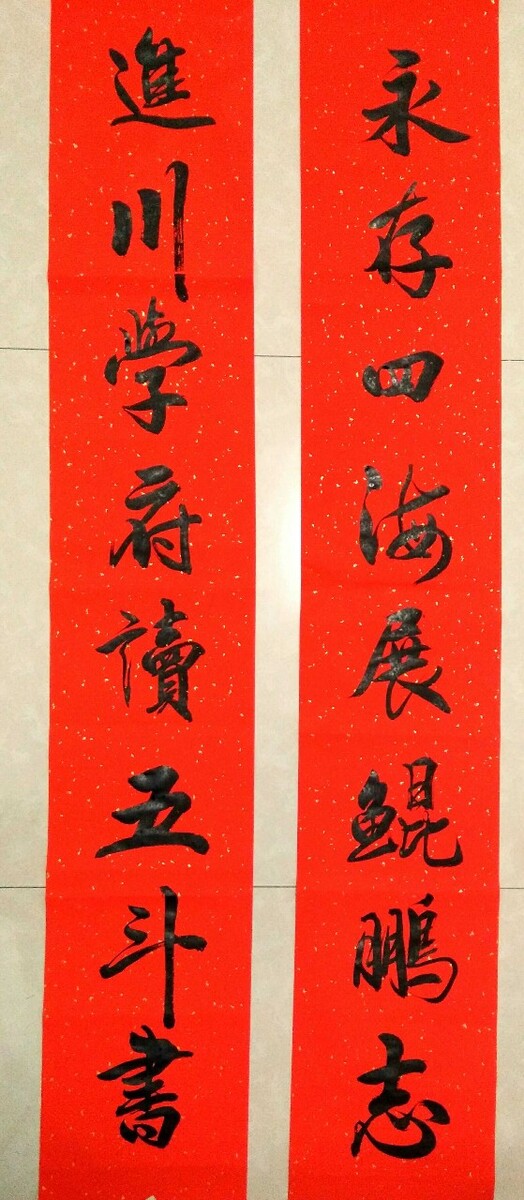 永存四海展鯤鵬志
進川學府讀五斗書